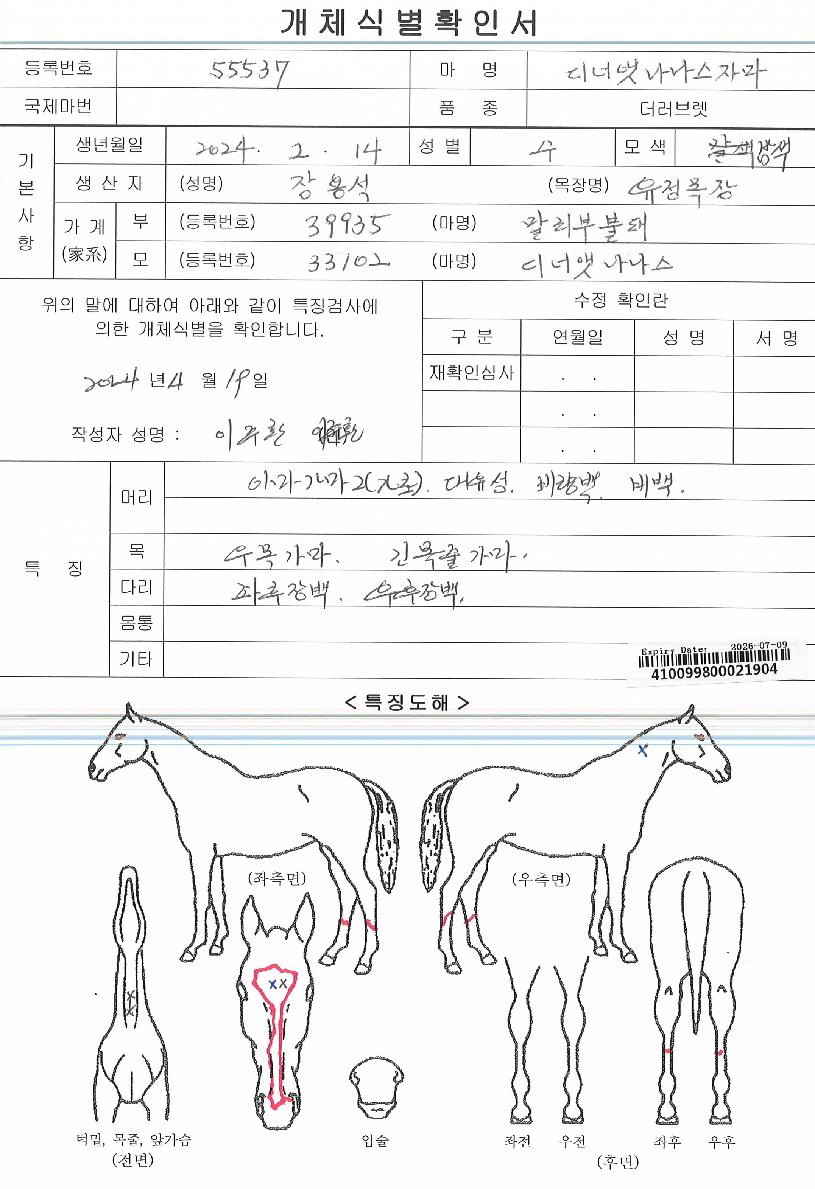 개체식별확인서
등록번호 55537 마 명 디너앳나나스자마
국제마번 품 종 더러브렛
기본사항 생년월일 2024. 2. 14 성별 수 모색
생산자 (성명) 장용석 (목장명) 유정목장
가계(家系) 부 (등록번호) 39935 (마명) 말리부불대
모 (등록번호) 33102 (마명) 디너앳나나스
위의 말에 대하여 아래와 같이 특징검사에
의한 개체식별을 확인합니다.
2024 년 4 월 19 일
작성자 성명 : 이주환
수정 확인란
구 분 연월일 성 명 서 명
재확인심사 . .
. .
. .
특 징
머리 대유성. 비량백. 비백.
목 우목가마. 긴목줄가마.
다리 좌후장백. 우후장백.
몸통
기타
Expiry Date: 2026-07-09
410099800021904
< 특징도해 >
(좌측면) (우측면)
턱밑, 목줄, 앞가슴
(전면)
입술
좌전 우전 좌후 우후
(후면)